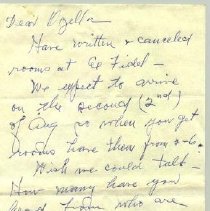 Dear Ozella
Have written & canceled
rooms at El Fidel -
We expect to arrive
on the second (2nd)
of Aug so when you get
rooms have them from 2-6.
Wish we could talk -
How many have you
heard from who are